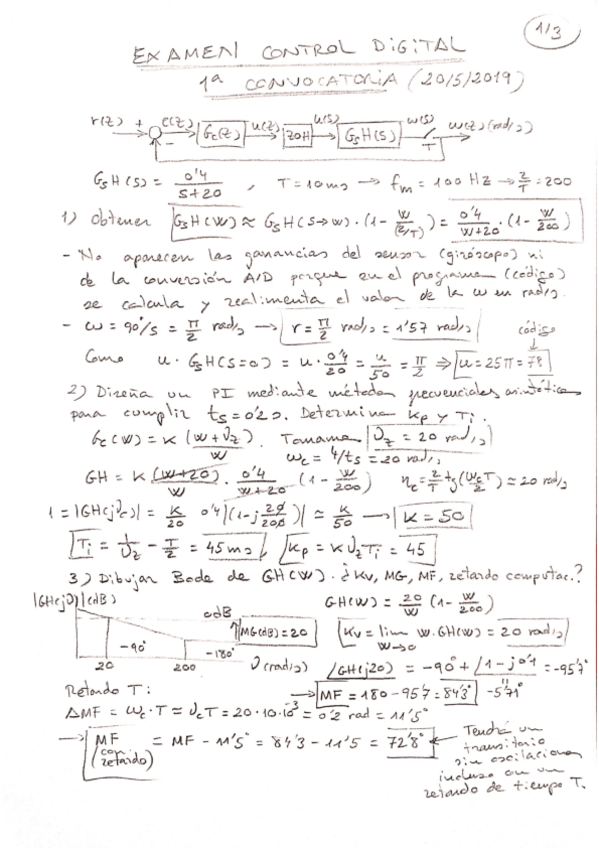 1/3
EXAMEN CONTROL DIGITAL
1ª CONVOCATORIA (20/5/2019)
r(z) + e(z) - Gc(z) u(z) ZOH u(s) GsH(s) w(s) T w(z) (rad/s)
GsH(s) = 0'4/(s+20) , T=10ms → fm = 100 Hz → 2/T = 200
1) Obtener GsH(w) ≈ GsH(s→w)·(1 - w/(2/T)) = 0'4/(w+20)·(1 - w/200)
- No aparecen las ganancias del sensor (giróscopo) ni
de la conversión A/D porque en el programa (código)
se calcula y realimenta el valor de la ω en rad/s.
- ω = 90°/s = π/2 rad/s → r = π/2 rad/s = 1'57 rad/s
código
Como u·GsH(s=0) = u·0'4/20 = u/50 = π/2 ⇒ u = 25π = 78
2) Diseña un PI mediante métodos frecuenciales asintóticos
para cumplir ts = 0'2s. Determina Kp y Ti.
Gc(w) = K (w+νz)/w. Tomamos νz = 20 rad/s
ωc = 4/ts = 20 rad/s
GH = K (w+20)/w · 0'4/(w+20) (1 - w/200) νc = 2/T tg(ωcT/2) ≈ 20 rad/s
1 = |GH(jνc)| = K/20 0'4 |(1-j 20/200)| ≈ K/50 → K = 50
Ti = 1/νz - T/2 = 45ms , Kp = K νz Ti = 45
3) Dibujar Bode de GH(w). ¿Kv, MG, MF, retardo computac.?
|GH(jν)|(dB) GH(w) = 20/w (1 - w/200)
0dB MG(dB) = 20 Kv = lim w→0 w·GH(w) = 20 rad/s
-90° -180°
20 200 ν(rad/s) /GH(j20) = -90° + /1-j0'1 = -95'7°
-5'71°
Retardo T: → MF = 180-95'7 = 84'3°
ΔMF = ωc·T ≈ νc T = 20·10·10⁻³ = 0'2 rad = 11'5°
→ MF (con retardo) = MF - 11'5° = 84'3 - 11'5° = 72'8° ←
Tendrá un
transitorio
sin oscilaciones
incluso con un
retardo de tiempo T.